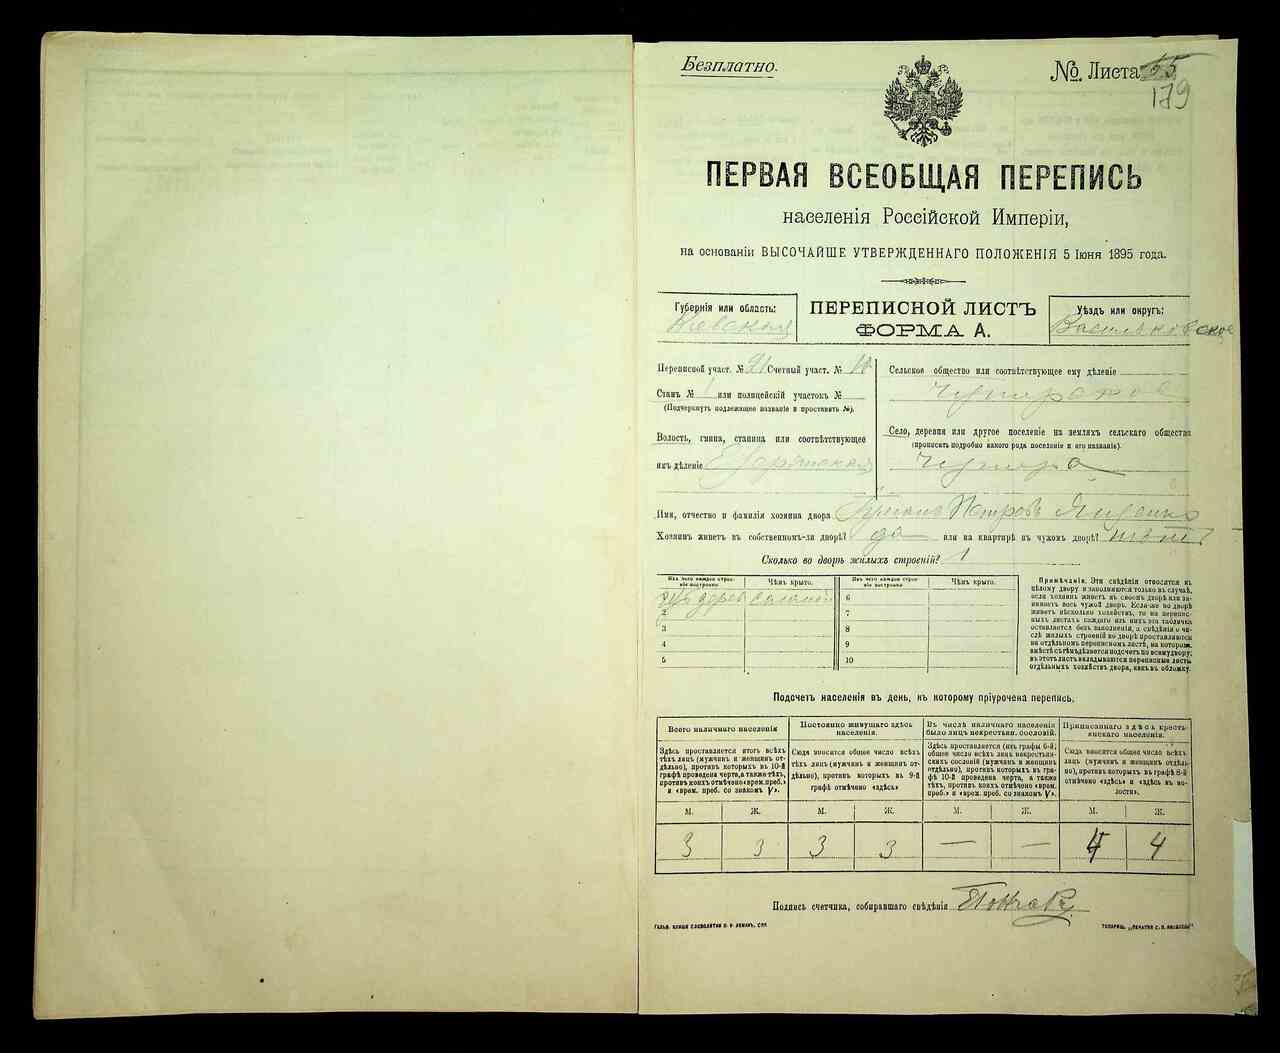 Безплатно.
№ Листа 55
179
ПЕРВАЯ ВСЕОБЩАЯ ПЕРЕПИСЬ
населенія Россійской Имперіи,
на основаніи ВЫСОЧАЙШЕ УТВЕРЖДЕННАГО ПОЛОЖЕНІЯ 5 Іюня 1895 года.
Губернія или область:
Кіевская
ПЕРЕПИСНОЙ ЛИСТЪ
ФОРМА А.
Уѣздъ или округъ:
Васильковское
Переписной участ. № 21 Счетный участ. №
Станъ № 1 или полицейскій участокъ №
(Подчеркнуть подлежащее названіе и проставить №).
Волость, гмина, станица или соотвѣтствующее
имъ дѣленіе
Сельское общество или соотвѣтствующее ему дѣленіе
Село, деревня или другое поселеніе на земляхъ сельскаго общества
(прописать подробно какого рода поселеніе и его названіе).
Имя, отчество и фамилія хозяина двора Петровъ Яценко
Хозяинъ живетъ въ собственномъ-ли дворѣ? да или на квартирѣ въ чужомъ дворѣ?
Сколько во дворѣ жилыхъ строеній? 1
Изъ чего каждое строеніе построено
Чѣмъ крыто.
Изъ чего каждое строеніе построено
Чѣмъ крыто.
дерев соломой
2
3
4
5
6
7
8
9
10
Примѣчаніе. Эти свѣдѣнія относятся къ
цѣлому двору и заполняются только въ случаѣ,
если хозяинъ живетъ въ своемъ дворѣ или занимаетъ весь чужой дворъ. Если-же во дворѣ
живетъ нѣсколько хозяйствъ, то на переписныхъ листахъ каждаго изъ нихъ эта табличка
оставляется безъ заполненія, а свѣдѣнія о числѣ жилыхъ строеній во дворѣ проставляются
на отдѣльномъ переписномъ листѣ, на которомъ
вмѣстѣ съ тѣмъ дѣлается подсчетъ по всему двору;
въ этотъ листъ вкладываются переписные листы
отдѣльныхъ хозяйствъ двора, какъ въ обложку.
Подсчетъ населенія въ день, къ которому пріурочена перепись.
Всего наличнаго населенія
Постоянно живущаго здѣсь населенія.
Въ числѣ наличнаго населенія было лицъ некрестьян. сословій.
Приписаннаго здѣсь крестьянскаго населенія.
Здѣсь проставляется итогъ всѣхъ
тѣхъ лицъ (мужчинъ и женщинъ отдѣльно), противъ которыхъ въ 10-й
графѣ проведена черта, а также тѣхъ,
противъ коихъ отмѣчено «врем. преб.»
и «врем. преб. со знакомъ V».
Сюда вносится общее число всѣхъ
тѣхъ лицъ (мужчинъ и женщинъ отдѣльно), противъ которыхъ въ 9-й
графѣ отмѣчено «здѣсь»
Здѣсь проставляется (изъ графы 6-й)
общее число всѣхъ лицъ некрестьянскихъ сословій (мужчинъ и женщинъ
отдѣльно), противъ которыхъ въ графѣ 10-й проведена черта, а также
тѣхъ, противъ коихъ отмѣчено «врем.
преб.» и «врем. преб. со знакомъ V».
Сюда вносится общее число всѣхъ
лицъ (мужчинъ и женщинъ отдѣльно), противъ которыхъ въ графѣ 8-й
отмѣчено «здѣсь» и «здѣсь въ волости».
М. Ж. М. Ж. М. Ж. М. Ж.
3 3 3 3 — — 4 4
Подпись счетчика, собиравшаго свѣдѣнія